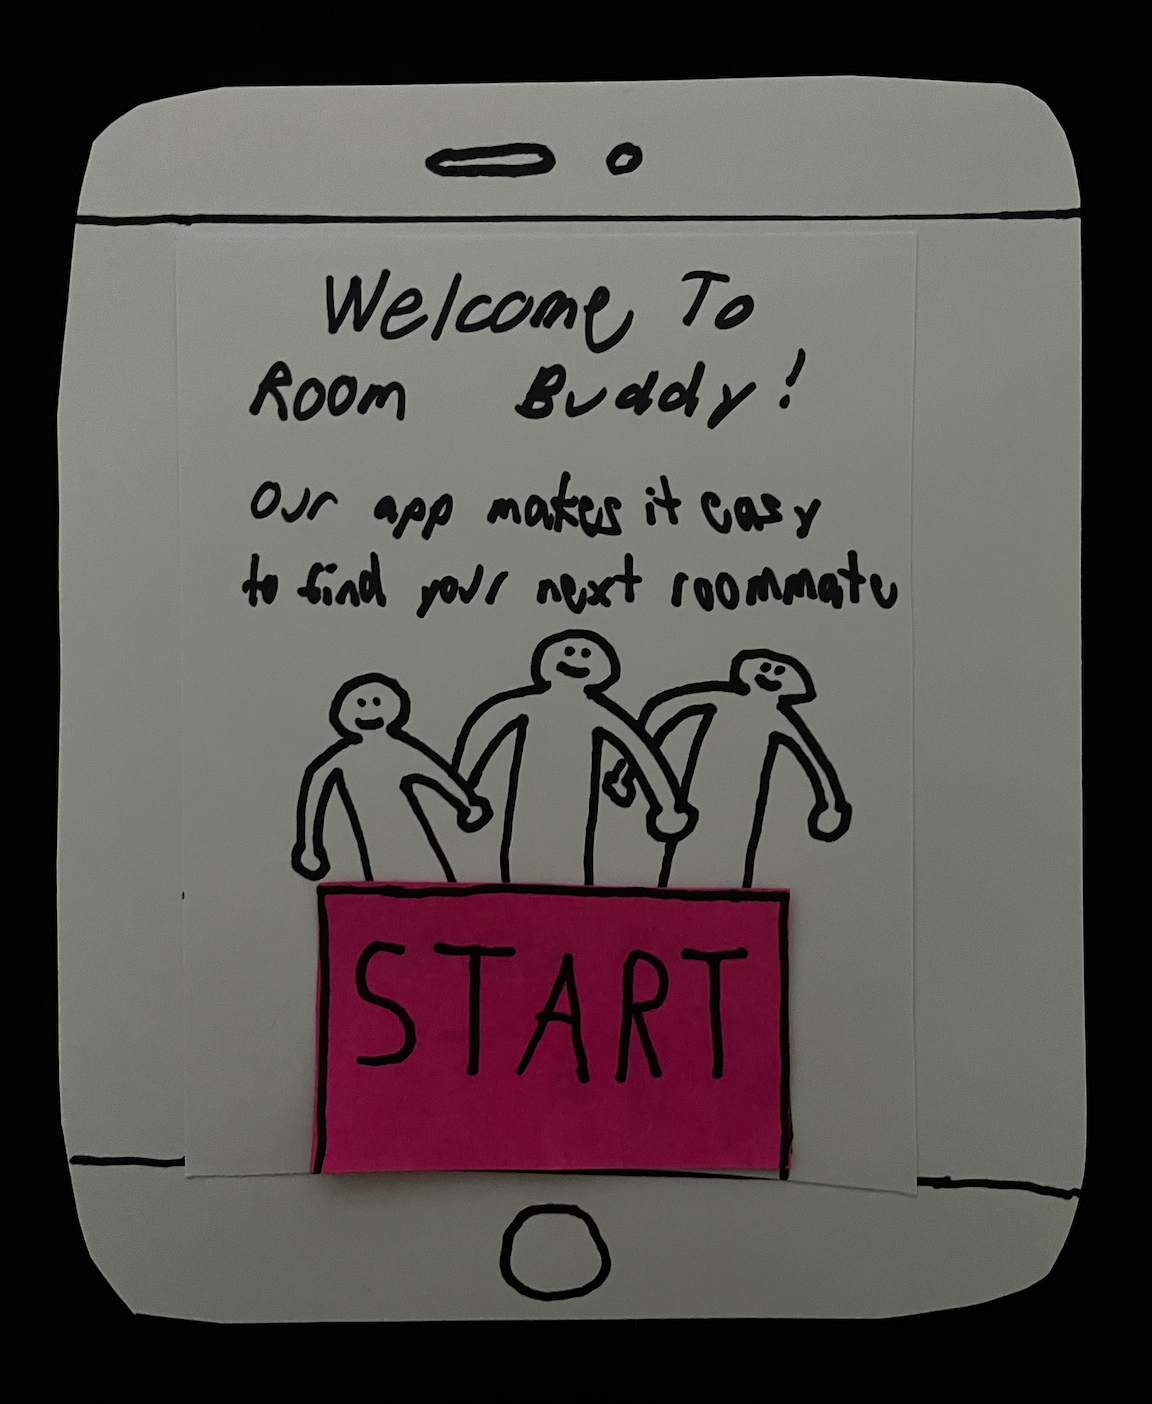 Welcome To
Room Buddy!
Our app makes it easy
to find your next roommate
START